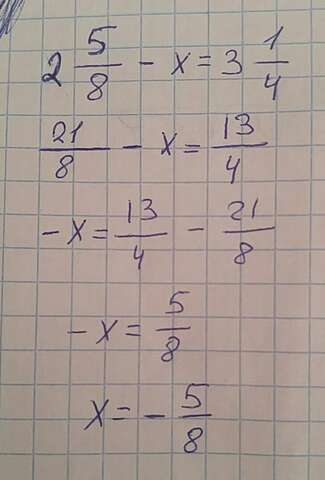 2 5/8 - x = 3 1/4
21/8 - x = 13/4
-x = 13/4 - 21/8
-x = 5/8
x = - 5/8